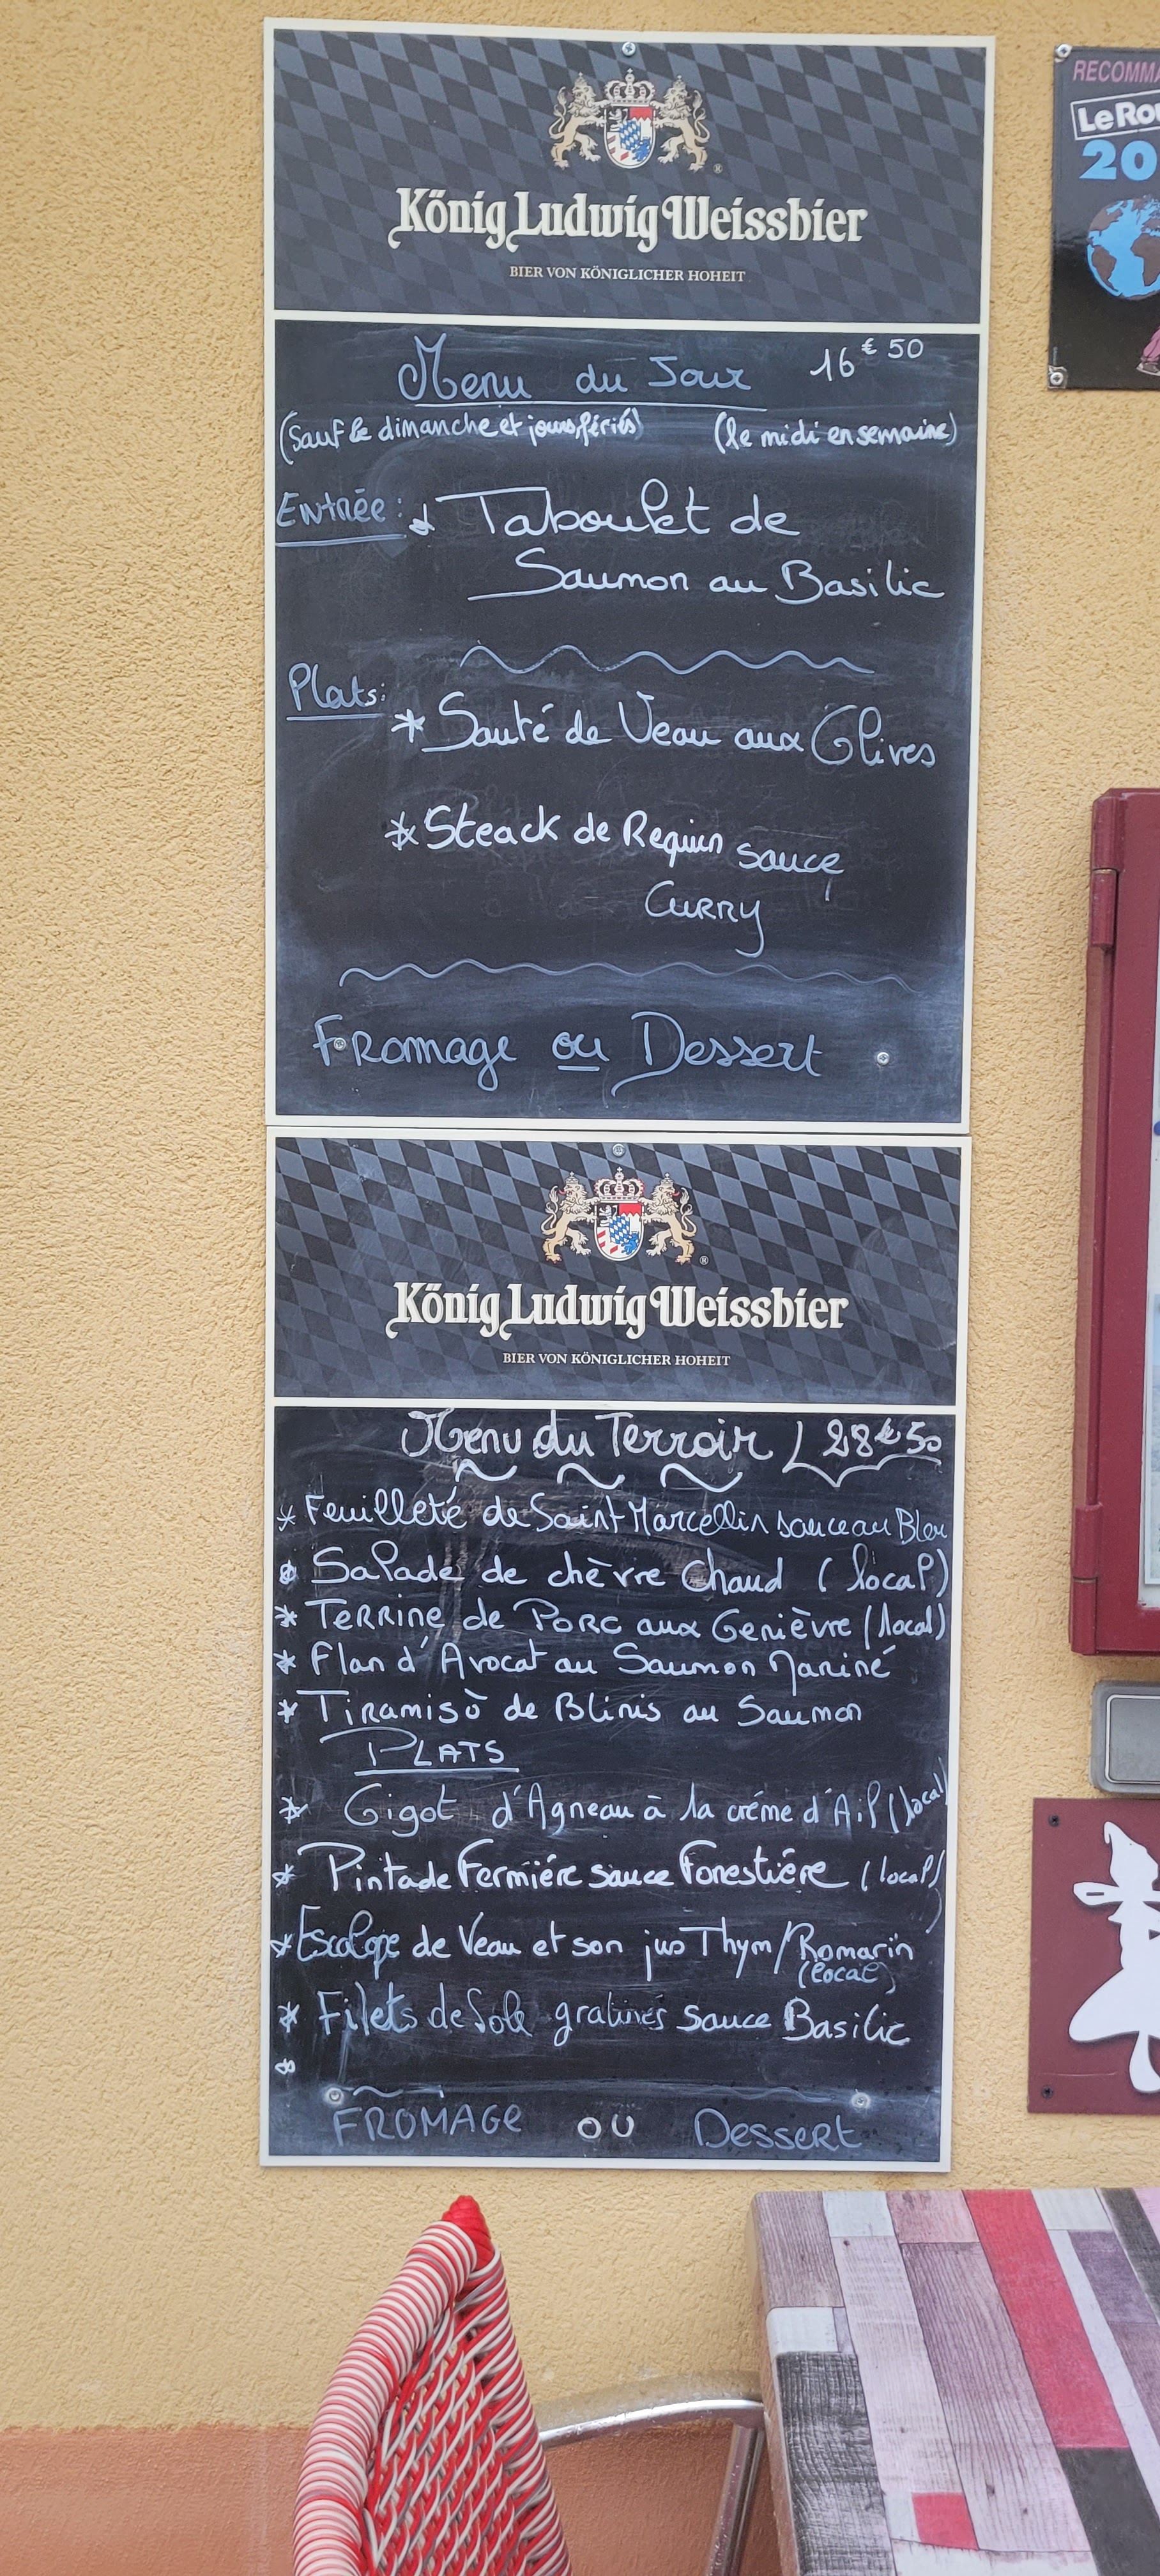 RECOMMA
Le Rou
20
König Ludwig Weissbier
BIER VON KÖNIGLICHER HOHEIT
Menu du Jour 16€50
(Sauf le dimanche et jours fériés) (le midi en semaine)
Entrée: * Taboulet de
Saumon au Basilic
Plats:
* Sauté de Veau aux Olives
* Steack de Requin sauce
CURRY
Fromage ou Dessert
König Ludwig Weissbier
BIER VON KÖNIGLICHER HOHEIT
Menu du Terroir 28€50
* Feuilleté de Saint Marcellin sauce au Bleu
* Salade de chèvre Chaud (local)
* Terrine de Porc aux Genièvre (local)
* Flan d'Avocat au Saumon Mariné
* Tiramisò de Blinis au Saumon
PLATS
* Gigot d'Agneau à la créme d'Ail (local)
* Pintade Fermiére sauce Forestiére (local)
* Escalope de Veau et son jus Thym/Romarin
(local)
* Filets de Sole gratinés sauce Basilic
FROMAGE OU Dessert